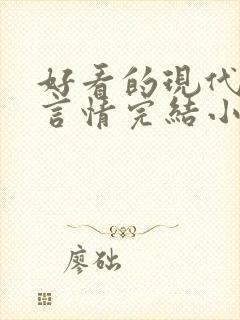 好看的現代
言情完結小
廖础